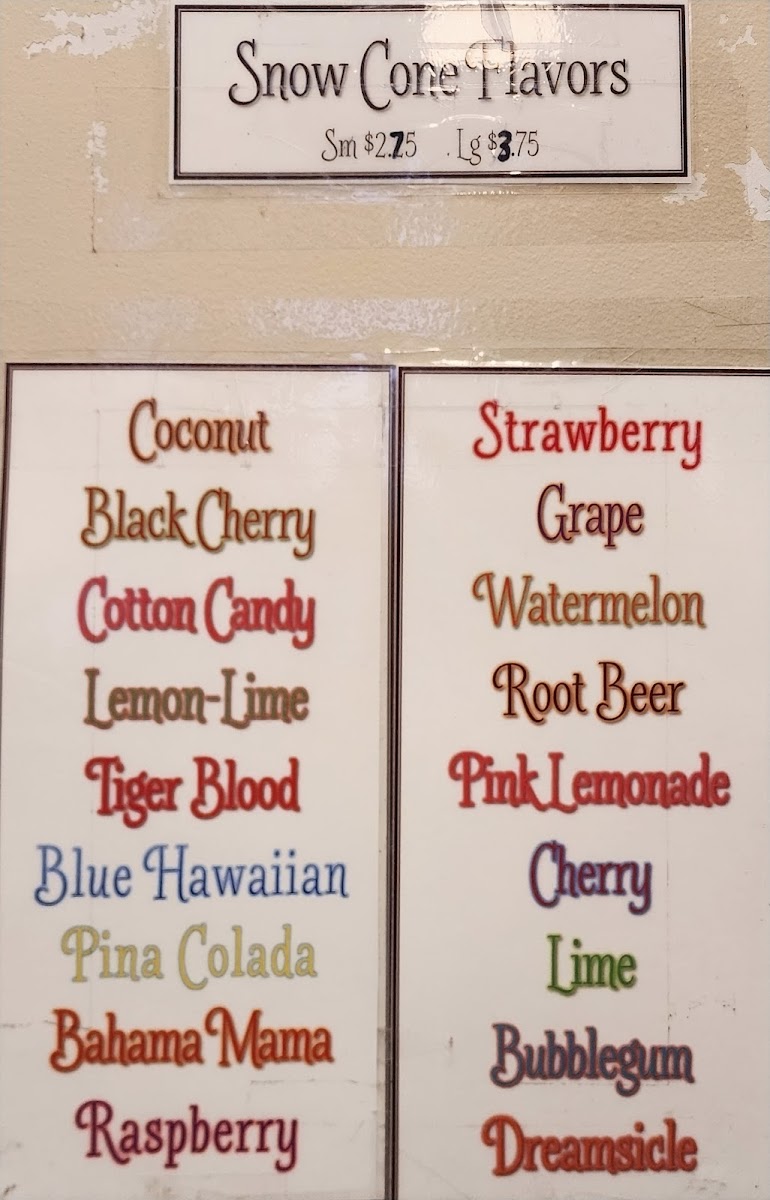 Snow Cone Flavors
Sm $2.75 . Lg $3.75
Coconut
Black Cherry
Cotton Candy
Lemon-Lime
Tiger Blood
Blue Hawaiian
Pina Colada
Bahama Mama
Raspberry
Strawberry
Grape
Watermelon
Root Beer
Pink Lemonade
Cherry
Lime
Bubblegum
Dreamsicle